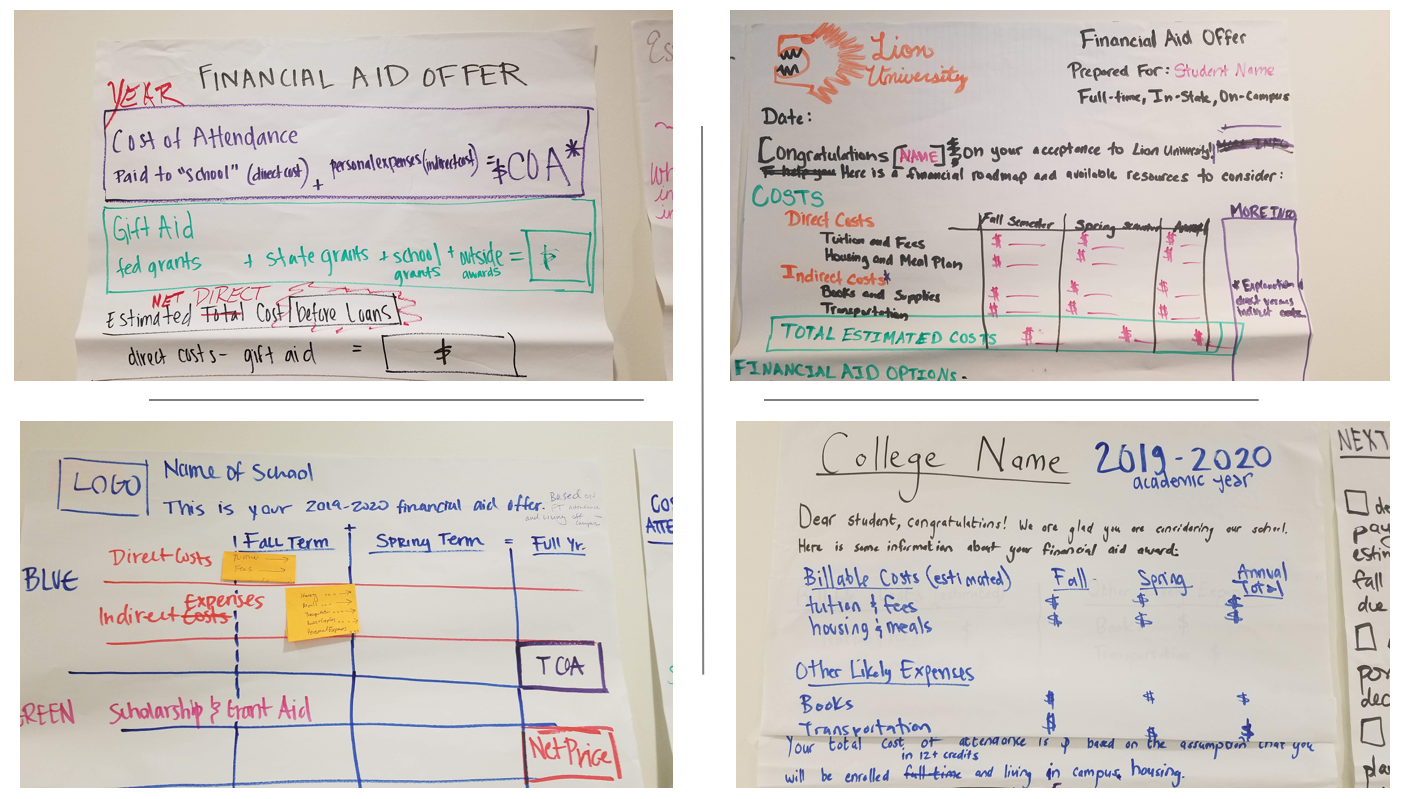 YEAR FINANCIAL AID OFFER
Cost of Attendance
Paid to "school" (direct cost) + personal expenses (indirect cost) = $COA*
Gift Aid
fed grants + state grants + school grants + outside awards = $
NET DIRECT
Estimated Total Cost before Loans
direct costs - gift aid = $
Es
Lion
University
Financial Aid Offer
Prepared For: Student Name
Full-time, In-State, On-Campus
Date:
Congratulations [NAME] on your acceptance to Lion University!
To help you Here is a financial roadmap and available resources to consider:
COSTS
MORE INFO
Direct Costs Fall Semester Spring Semester Annual
Tuition and Fees $ $ $
Housing and Meal Plan $ $ $
Indirect Costs*
Books and Supplies $ $ $
Transportation $ $ $
* Explanation
direct versus
indirect costs
TOTAL ESTIMATED COSTS $ $ $
FINANCIAL AID OPTIONS
LOGO
Name of School
This is your 2019-2020 financial aid offer.
Based on
and living off
campus
Fall Term + Spring Term = Full Yr.
BLUE
Direct Costs
Fees
Indirect Costs Expenses
TCOA
GREEN Scholarship & Grant Aid
Net Price
CO
ATTE
College Name 2019-2020
academic year
Dear student, congratulations! We are glad you are considering our school.
Here is some information about your financial aid award:
Billable Costs (estimated) Fall Spring Annual Total
tuition & fees $ $ $
housing & meals $ $ $
Other Likely Expenses
Books $ $ $
Transportation $ $ $
Your total cost of attendance is $ based on the assumption that you
in 12+ credits
will be enrolled full-time and living in campus housing.
NEXT
de
pay
estin
fall
due
por
dec
pla